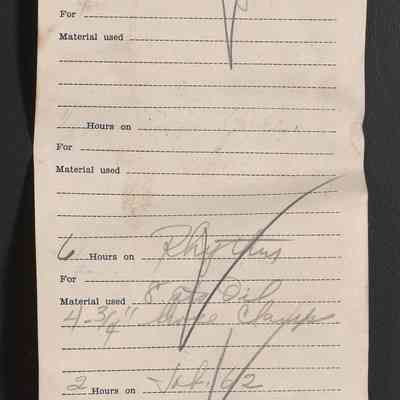 For
Material used
Hours on
For
Material used
6 Hours on Rhythm
For
Material used 8 qts Oil
4-3/4" Hose Clamps
2 Hours on Job. 62